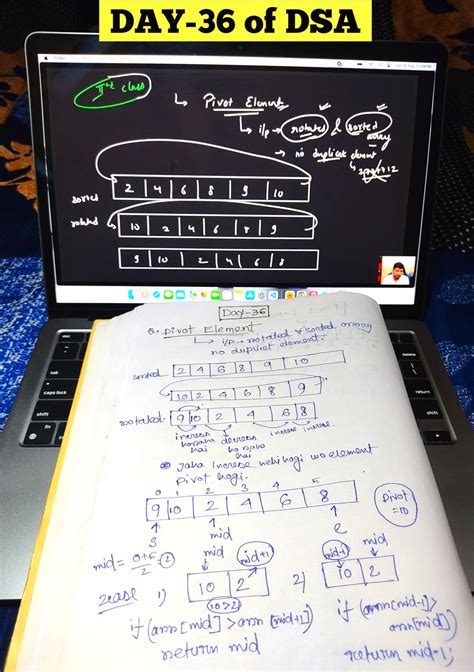 DAY-36 of DSA
IInd class
Pivot Element
i/p → rotated & sorted array
→ no duplicate element
sorted 2 4 6 8 9 10
rotated 10 2 4 6 8 9
9 10 2 4 6 8
Day-36
Q. Pivot Element
i/p → rotated & sorted array
no duplicate element.
sorted 2 4 6 8 9 10
10 2 4 6 8 9
rotated. 9 10 2 4 6 8
increse decrese increse increse.
ho raha ho raha
hai hai
Jaha increse nahi hogi wo element
Pivot hogi.
0 1 2 3 4 5
9 10 2 4 6 8
Pivot
=10
s mid e
mid = 0+5/2 = 2
mid mid+1 mid-1 mid
2case 1) 10 2 2) 10 2
10>2
if (arr[mid] > arr[mid+1])
return mid
if (arr[mid-1] >
arr[mid])
return mid-1;